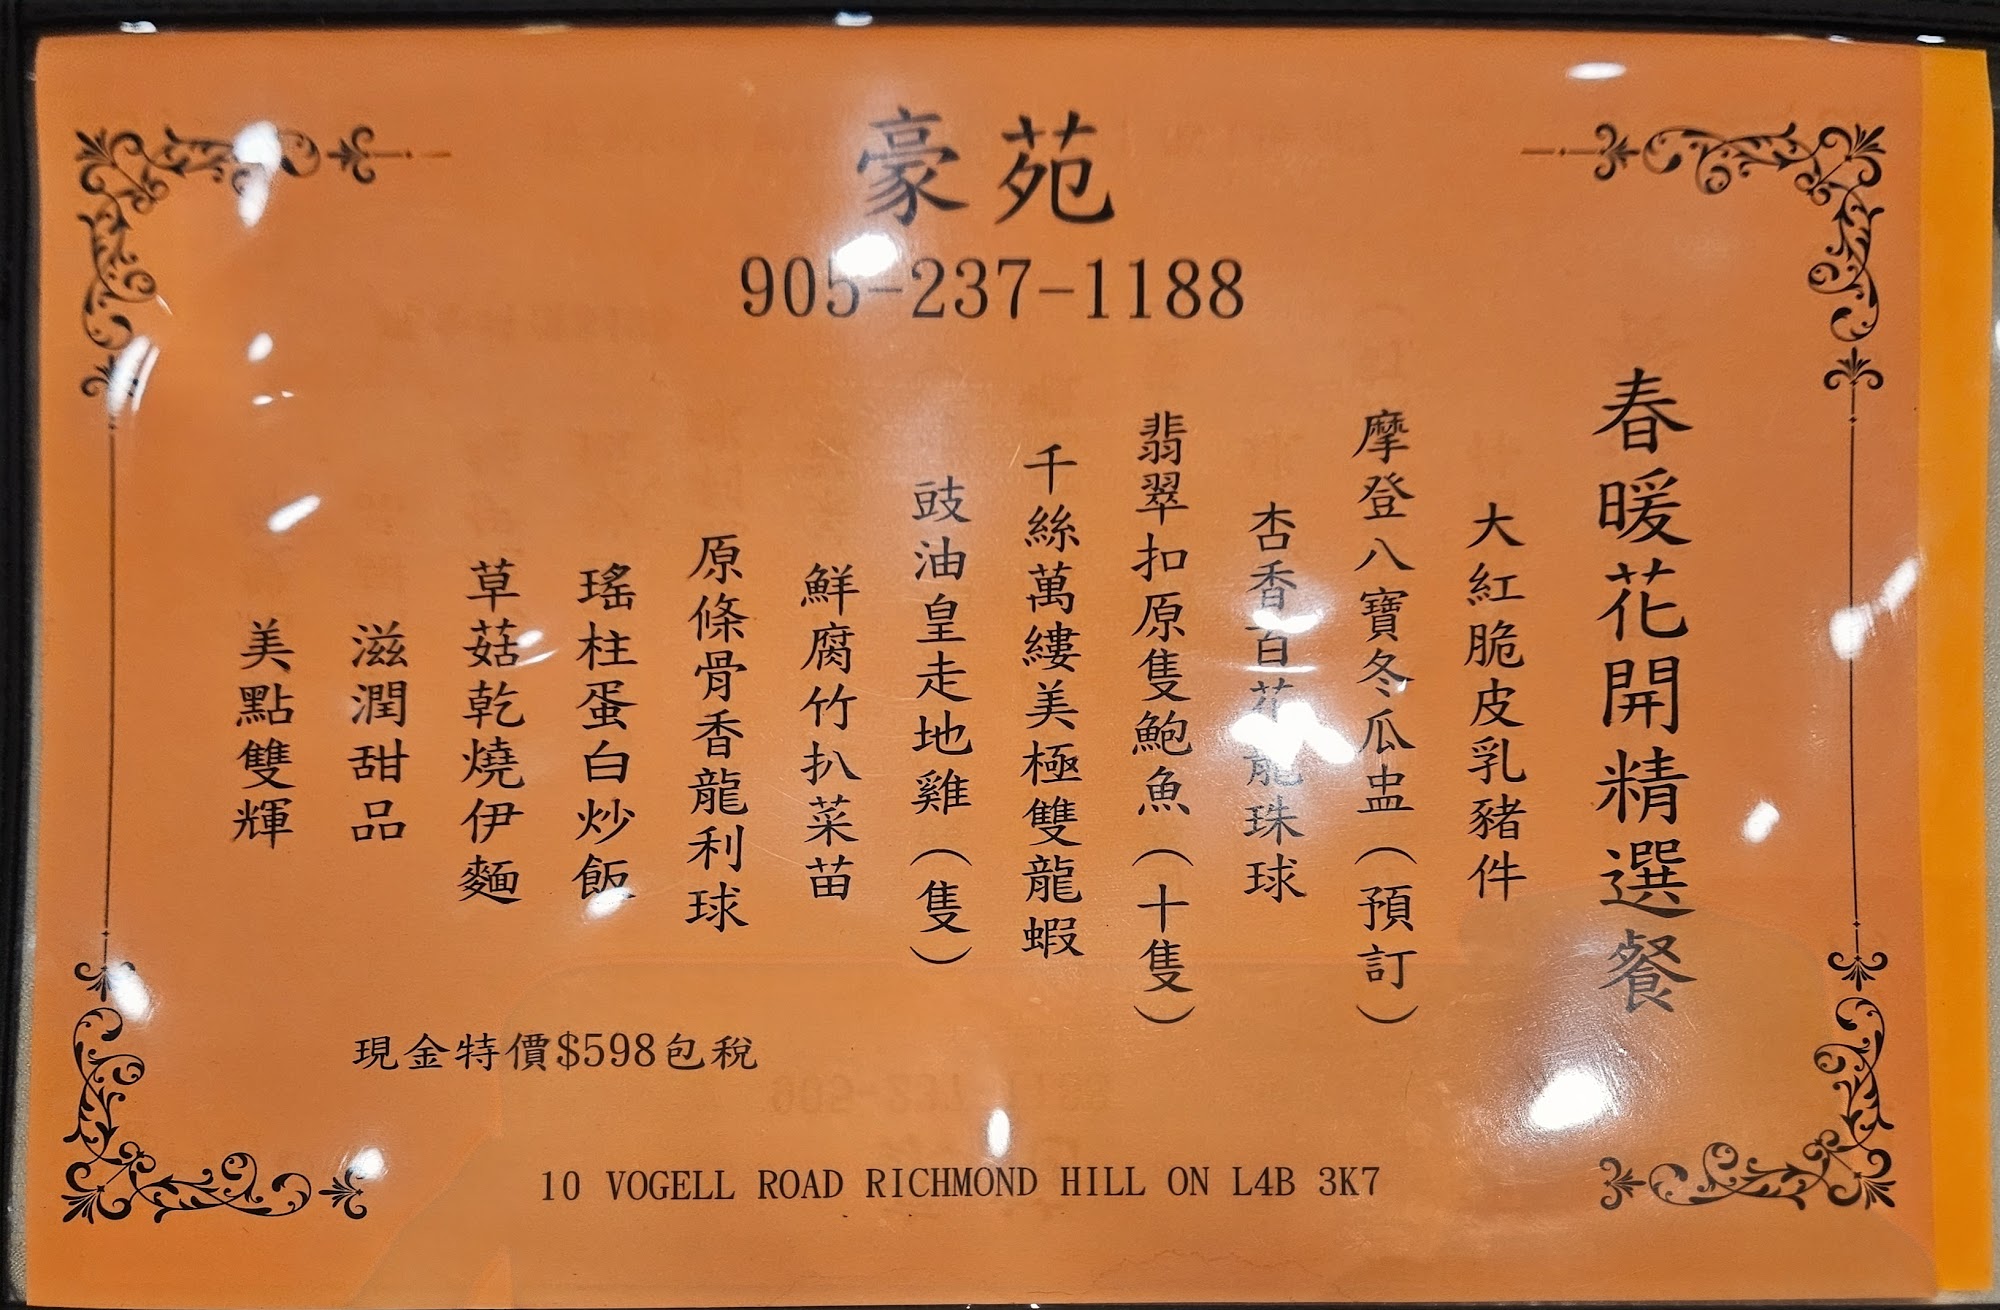 豪苑
905-237-1188
春暖花開精選餐
大紅脆皮乳豬件
摩登八寶冬瓜盅（預訂）
杏香百花龍珠球
翡翠扣原隻鮑魚（十隻）
千絲萬縷美極雙龍蝦
豉油皇走地雞（隻）
鮮腐竹扒菜苗
原條骨香龍利球
瑤柱蛋白炒飯
草菇乾燒伊麵
滋潤甜品
美點雙輝
現金特價$598包稅
10 VOGELL ROAD RICHMOND HILL ON L4B 3K7